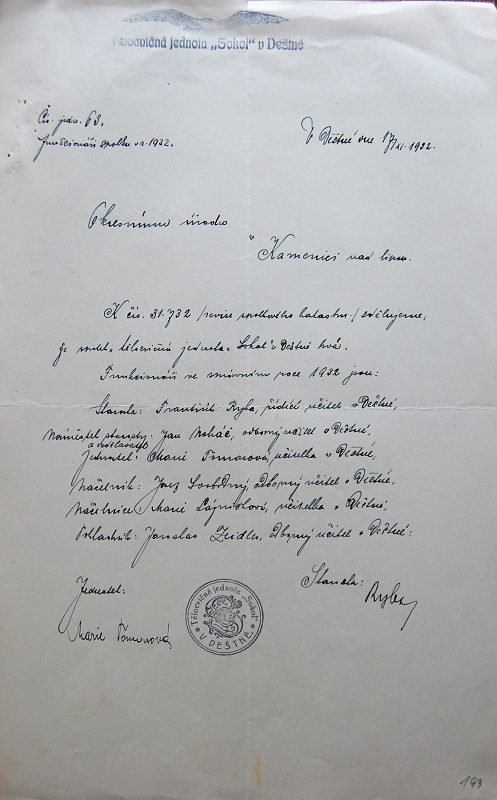 Tělocvičná jednota „Sokol" v Deštné
Čís. jedn. 63.
funkcionáři spolku v r. 1932.
V Deštné dne 17/XI. 1932.
Okresnímu úřadu
v Kamenici nad Lipou.
K čís. 31.732 /revise spolkového katastru/ sdělujeme,
že spolek „tělocvičná jednota „Sokol" v Deštné trvá.
Funkcionáři ve správním roce 1932 jsou:
Starosta: František Ryba, řídící učitel v Deštné,
Náměstek starosty: Jan , odborný učitel v Deštné,
a vzdělavatel
Jednatel: Marie Tomanová, učitelka v Deštné,
Náčelník: Josef Svobodný, odborný učitel v Deštné,
Náčelnice: Marie , učitelka v Deštné,
Pokladník: Jaroslav Zeidler, odborný učitel v Deštné.
Jednatel:
Starosta:
Ryba
Marie Tomanová
Tělocvičná jednota „Sokol"
V DEŠTNÉ
199